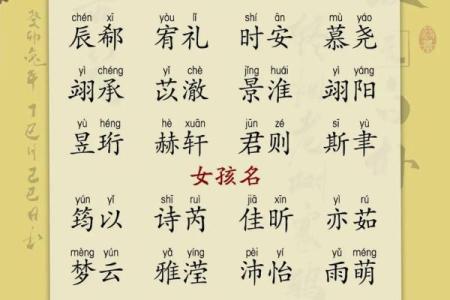 chén xī yòu lǐ shí ān mù yáo
辰郗 宥礼 时安 慕尧
yì chéng yǐ chè jǐng huái yì yáng
翊承 苡澈 景淮 翊阳
yù héng hè xuān jūn zé sī yù
昱珩 赫轩 君则 斯聿
女孩名
yún yǐ shī ruì jiā xīn yì rú
筠以 诗芮 佳昕 亦茹
mèng yún yǎ yíng pèi yí yǔ méng
梦云 雅滢 沛怡 雨萌
癸卯兔年
丁巳月己巳日